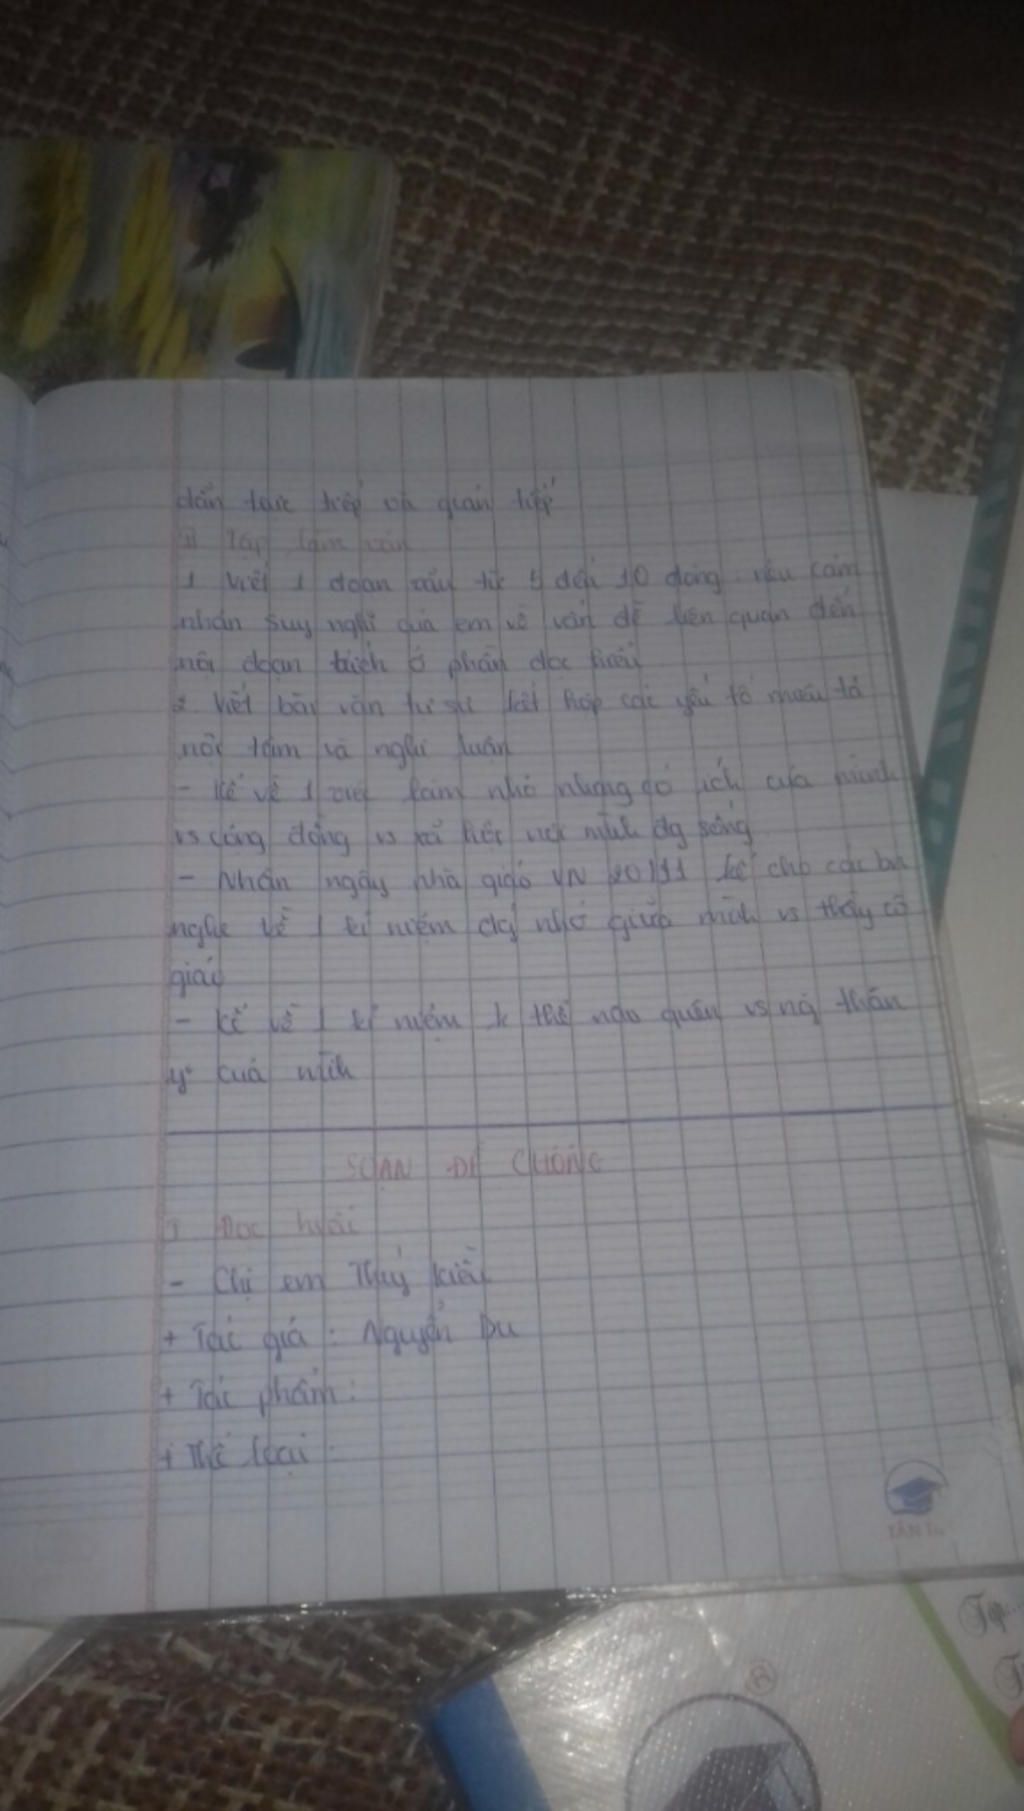 dẫn trực tiếp và gián tiếp
II Tập làm văn
1 Viết 1 đoạn văn từ 5 đến 10 dòng nêu cảm
nhận suy nghĩ của em về vấn đề liên quan đến
nội đoạn trích ở phần đọc hiểu
2 Viết bài văn tự sự kết hợp các yếu tố miêu tả
nội tâm và nghị luận
- Kể về 1 việc làm nhỏ nhưng có ích của mình
vs cộng đồng vs xã hội nơi mình đg sống
- Nhân ngày nhà giáo VN 20/11 kể cho các bn
nghe về 1 kỉ niệm đáng nhớ giữa mình vs thầy cô
giáo
- Kể về 1 kỉ niệm k thể nào quên vs ng thân
y° của mình
SOẠN ĐỀ CƯƠNG
I Đọc hiểu
- Chị em Thúy Kiều
+ Tác giả : Nguyễn Du
+ Tác phẩm :
+ Thể loại :